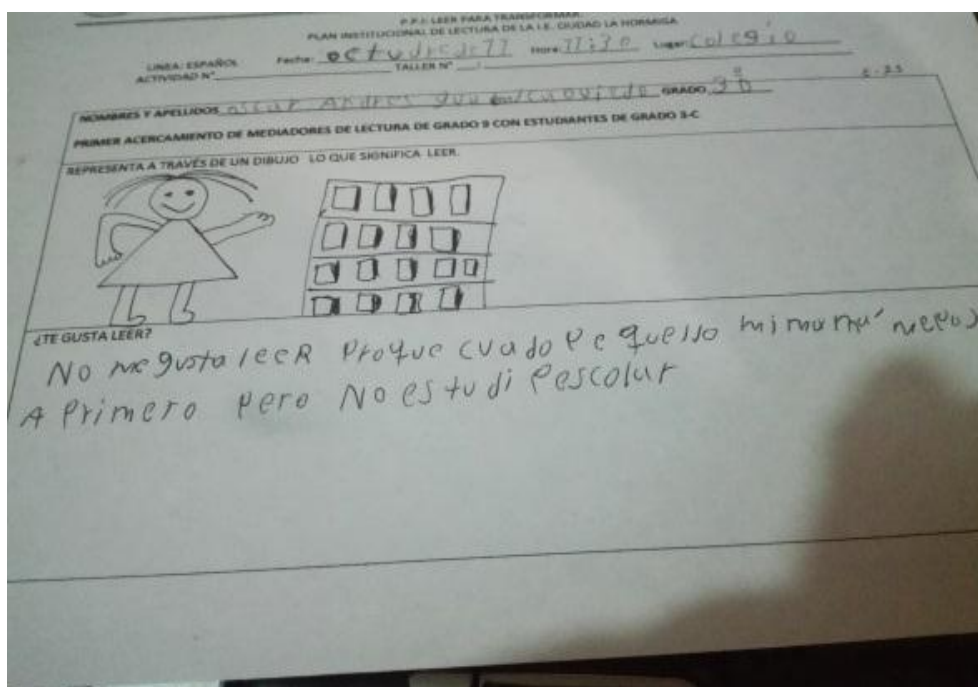 P.P.I: LEER PARA TRANSFORMAR
PLAN INSTITUCIONAL DE LECTURA DE LA I.E. CIUDAD LA HORMIGA
LINEA: ESPAÑOL Fecha: Hora: 11:30 Lugar: Colegio
ACTIVIDAD N° TALLER N°
NOMBRES Y APELLIDOS oscar Andres GRADO
PRIMER ACERCAMIENTO DE MEDIADORES DE LECTURA DE GRADO 9 CON ESTUDIANTES DE GRADO 3-C
REPRESENTA A TRAVÉS DE UN DIBUJO LO QUE SIGNIFICA LEER.
¿TE GUSTA LEER?
No me gusta leeR Proque cuado
A Primero pero No estudi Pescolar